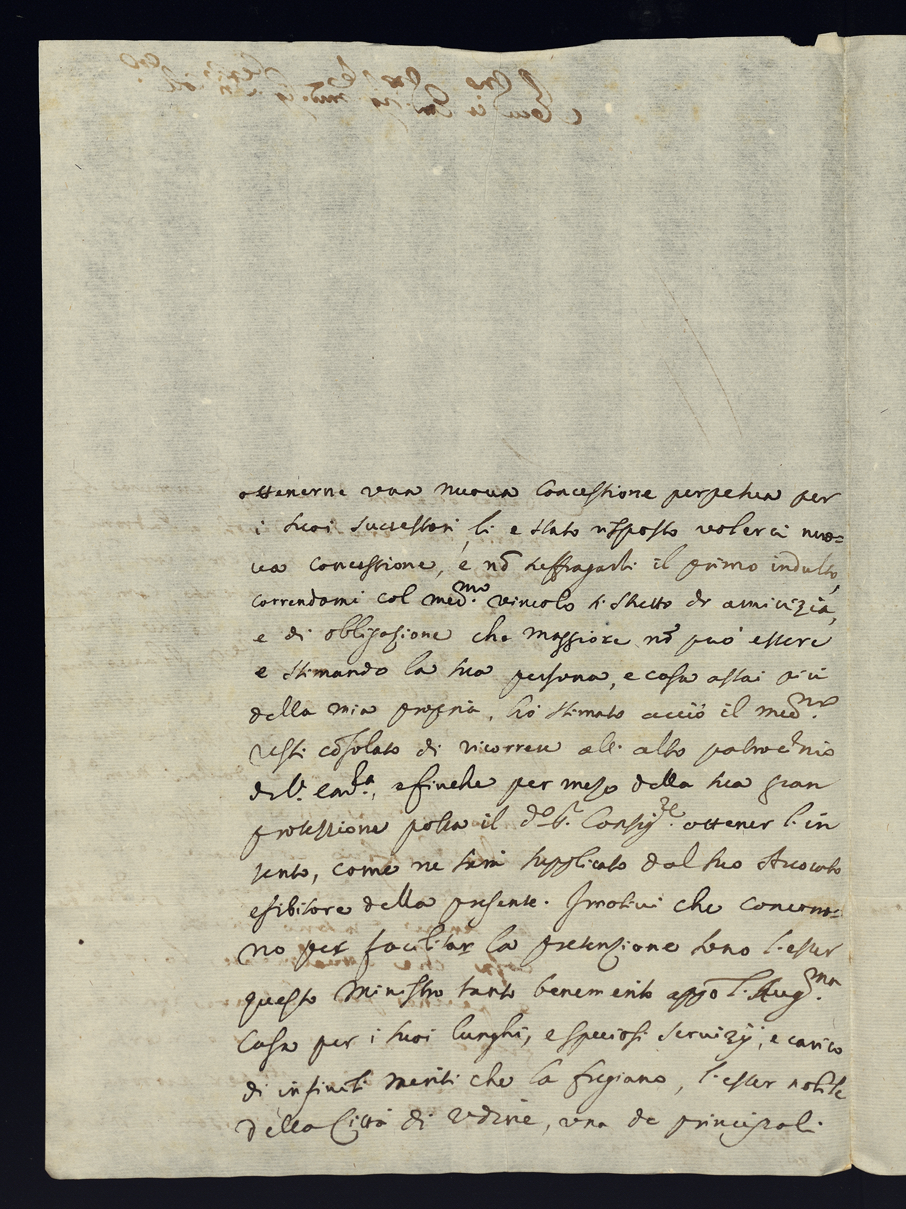 ottenerne vna nuoua Concessione perpetua per
i suoi successori, li e stato risposto volerci nuo=
ua concessione, e nõ suffragarli il primo indulto,
correndomi col med.mo vincolo si stretto di amicizia,
e di obligazione che maggiore nõ può essere
e stimando la sua persona, e casa assai più
della mia propria, hò stimato acciò il med.mo
resti cõsolato di ricorrere all' alto patrocinio
dell' Em.za, e finche per mezo della sua gran
protezzione possa il d.o S.r Consig.re ottener l' in
tento, come ne sarà supplicato dal suo Auocato
esibitore della presente. I motiui che concorro=
no per facilitar la pretenzione sono l' esser
questo Ministro tanto benemerito appo l' Aug.ma
Casa per i suoi lunghi, e speciosi seruizij, e carico
di infiniti meriti che lo fregiano, l' esser nobile
della Città di Vdine, vna de principali